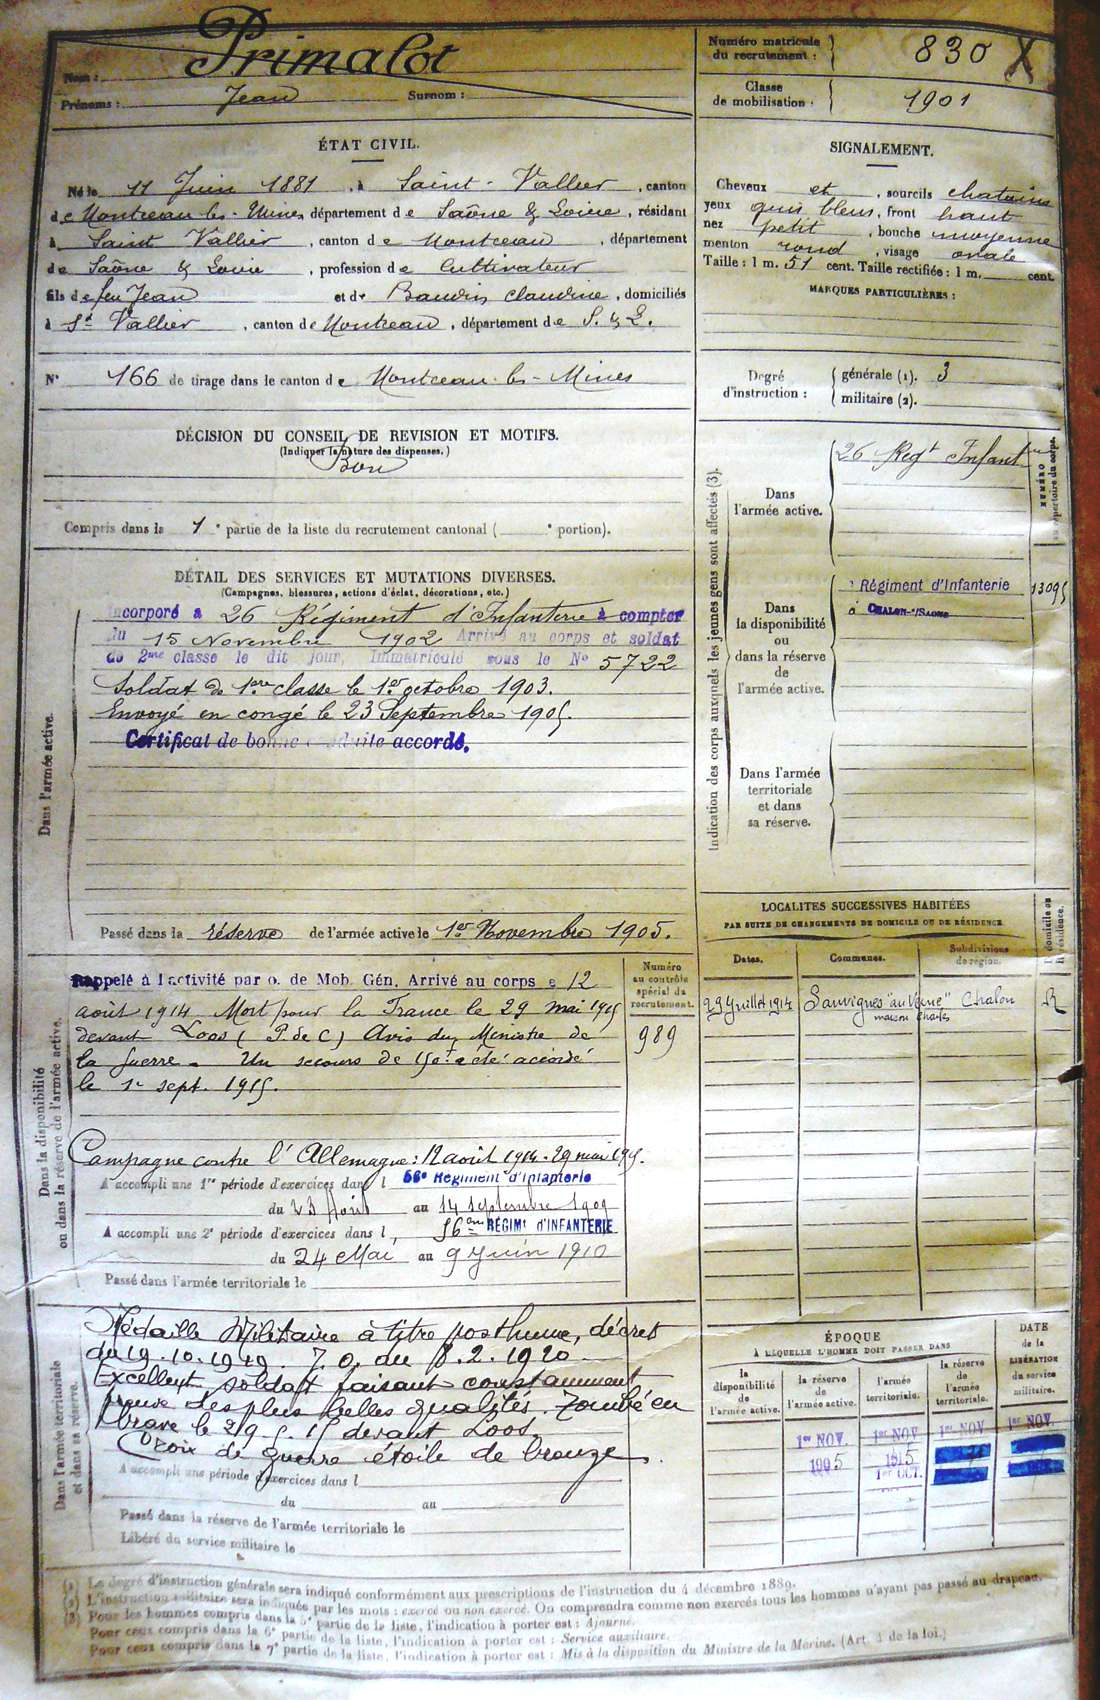 Nom : Primalot
Prénoms : Jean Surnom :
Numéro matricule
du recrutement : 830 X
Classe
de mobilisation : 1901
ÉTAT CIVIL.
Né le 11 Juin 1881, à Saint-Vallier, canton
de Montceau-les-Mines département de Saône & Loire, résidant
à Saint Vallier, canton de Montceau, département
de Saône & Loire, profession de Cultivateur
fils de feu Jean et de Baudin Claudine, domiciliés
à St Vallier, canton de Montceau, département de S. & L.
N° 166 de tirage dans le canton de Montceau-les-Mines
SIGNALEMENT.
Cheveux et , sourcils chatains
yeux gris bleus, front haut
nez petit, bouche moyenne
menton rond, visage ovale
Taille : 1 m. 51 cent. Taille rectifiée : 1 m. cent.
MARQUES PARTICULIÈRES :
Degré
d'instruction :
générale (1). 3
militaire (2).
DÉCISION DU CONSEIL DE REVISION ET MOTIFS.
(Indiquer la nature des dispenses.)
Bon
Compris dans la 1e partie de la liste du recrutement cantonal ( e portion).
DÉTAIL DES SERVICES ET MUTATIONS DIVERSES.
(Campagnes, blessures, actions d'éclat, décorations, etc.)
Dans l'armée active.
Incorporé à 26 Régiment d'Infanterie à compter
du 15 Novembre 1902 Arrivé au corps et soldat
de 2me classe le dit jour, Immatriculé sous le No 5722
Soldat de 1ère classe le 1er octobre 1903.
Envoyé en congé le 23 Septembre 1905.
Certificat de bonne conduite accordé.
Passé dans la réserve de l'armée active le 1er Novembre 1905.
Indication des corps auxquels les jeunes gens sont affectés (3).
Dans
l'armée active.
26 Regt Infant
NUMÉRO
au répertoire du corps.
Dans
la disponibilité
ou
dans la réserve
de
l'armée active.
Régiment d'Infanterie
à CHALON-s/SAONE
13095
Dans l'armée
territoriale
et dans
sa réserve.
LOCALITÉS SUCCESSIVES HABITÉES
PAR SUITE DE CHANGEMENTS DE DOMICILE OU DE RÉSIDENCE
Dates. Communes. Subdivisions
de région. D domicile ou
R résidence.
29 Juillet 1914 Sauvignes "au Verne" Chalon R
maison Charles
Dans la disponibilité
ou dans la réserve de l'armée active.
Numéro
au contrôle
spécial du
recrutement.
989
Rappelé à l'activité par o. de Mob. Gén. Arrivé au corps e 12
août 1914 Mort pour la France le 29 mai 1915
devant Loos (P. de C) Avis du Ministre de
la Guerre. Un secours de 150f a été accordé
le 1r sept. 1915.
Campagne contre l'Allemagne : 12 août 1914 - 29 mai 1915.
A accompli une 1re période d'exercices dans l 56e Régiment d'Infanterie
du 23 Août au 14 septembre 1909
A accompli une 2e période d'exercices dans l 56ème RÉGIMt d'INFANTERIE
du 24 Mai au 9 Juin 1910
Passé dans l'armée territoriale le
Dans l'armée territoriale
et dans sa réserve.
Médaille Militaire à titre posthume, décret
du 19.10.1919. J.O. du 8.2.1920
Excellent soldat faisant constamment
preuve des plus belles qualités. Tombé en
brave le 29.5.15 devant Loos.
Croix de guerre étoile de bronze.
A accompli une période d'exercices dans l
du au
Passé dans la réserve de l'armée territoriale le
Libéré du service militaire le
ÉPOQUE
À LAQUELLE L'HOMME DOIT PASSER DANS
DATE
de la
LIBÉRATION
du service
militaire.
la
disponibilité
de
l'armée active.
la réserve
de
l'armée active.
l'armée
territoriale.
la réserve
de
l'armée
territoriale.
1er NOV. 1er NOV 1er NOV 1er NOV.
1905 1915
1er OCT.
(1) Le degré d'instruction générale sera indiqué conformément aux prescriptions de l'instruction du 4 décembre 1889.
(2) L'instruction militaire sera indiquée par les mots : exercé ou non exercé. On comprendra comme non exercés tous les hommes n'ayant pas passé au drapeau.
(3) Pour les hommes compris dans la 5e partie de la liste, l'indication à porter est : Ajourné.
Pour ceux compris dans la 6e partie de la liste, l'indication à porter est : Service auxiliaire.
Pour ceux compris dans la 7e partie de la liste, l'indication à porter est : Mis à la disposition du Ministre de la Marine. (Art. 4 de la loi.)